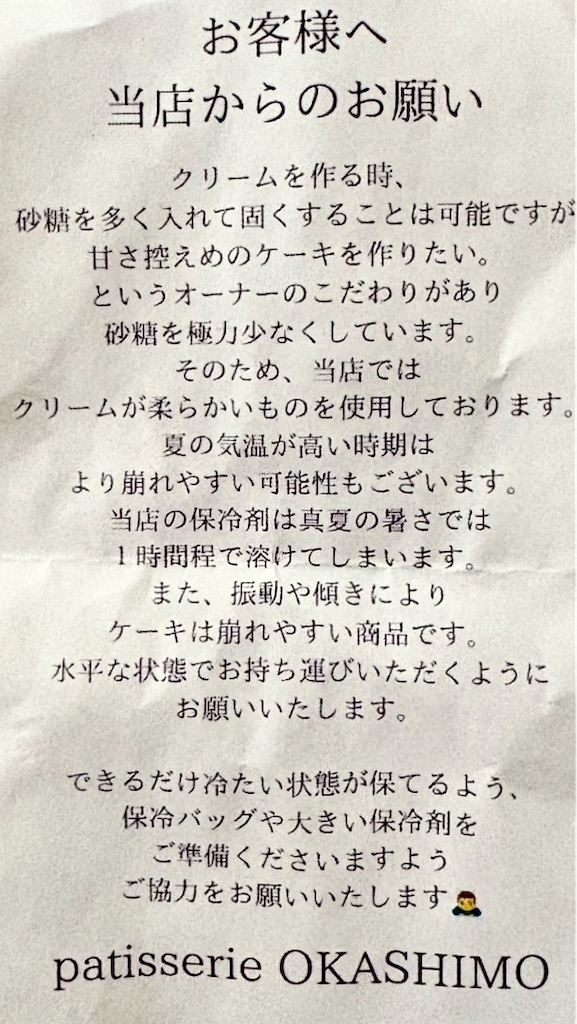 お客様へ
当店からのお願い
クリームを作る時、
砂糖を多く入れて固くすることは可能ですが
甘さ控えめのケーキを作りたい。
というオーナーのこだわりがあり
砂糖を極力少なくしています。
そのため、当店では
クリームが柔らかいものを使用しております。
夏の気温が高い時期は
より崩れやすい可能性もございます。
当店の保冷剤は真夏の暑さでは
１時間程で溶けてしまいます。
また、振動や傾きにより
ケーキは崩れやすい商品です。
水平な状態でお持ち運びいただくように
お願いいたします。
できるだけ冷たい状態が保てるよう、
保冷バッグや大きい保冷剤を
ご準備くださいますよう
ご協力をお願いいたします🙇
patisserie OKASHIMO